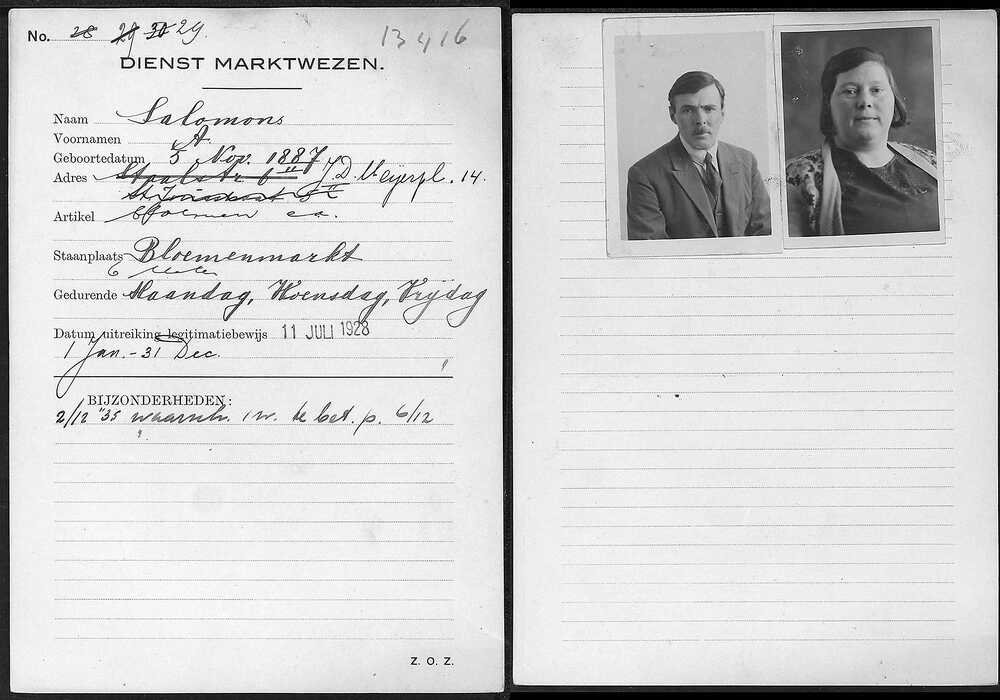 No. 28 29 30 29.
13416
DIENST MARKTWEZEN.
Naam Salomons
Voornamen A
Geboortedatum 5 Nov. 1887
Adres Staalstr 6 II J.D. Meijerpl. 14.
Artikel Bloemen ea.
Staanplaats Bloemenmarkt
Gedurende Maandag, Woensdag, Vrijdag
Datum uitreiking legitimatiebewijs 11 JULI 1928
1 Jan. - 31 Dec.
BIJZONDERHEDEN:
2/12 '35 waarsch. i.w. te bet. p. 6/12
Z. O. Z.